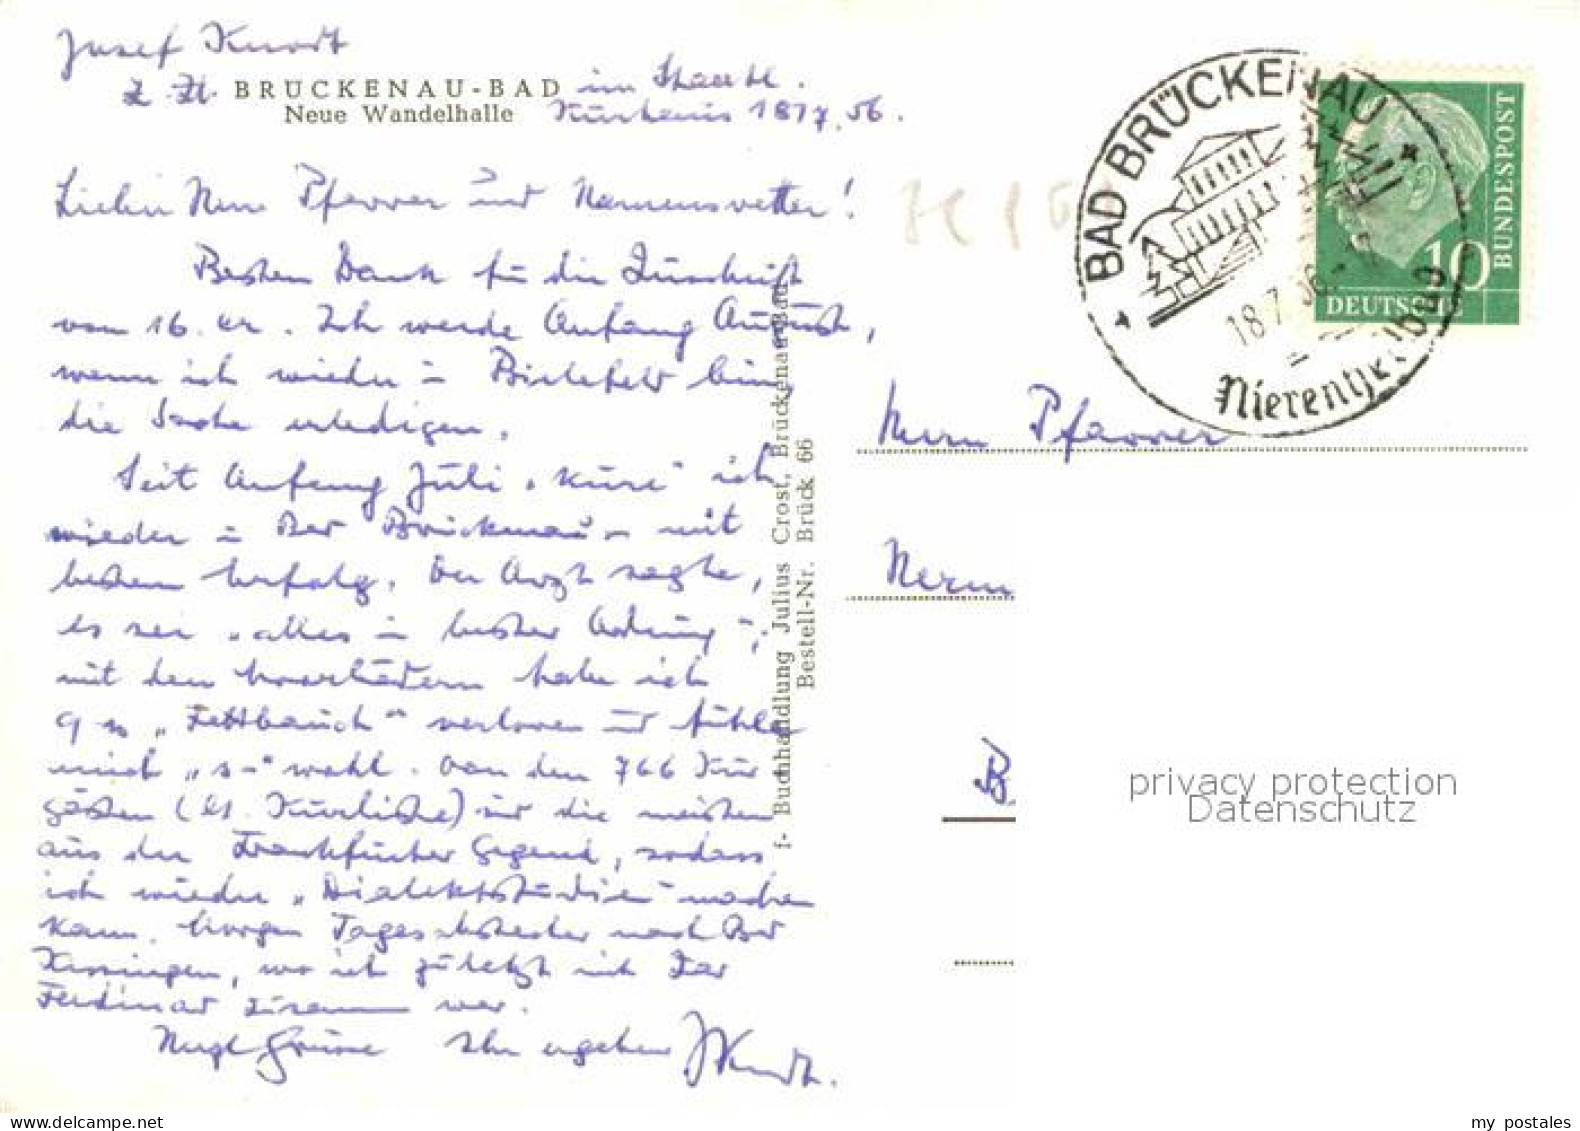 Josef
z. Zt. BRÜCKENAU-BAD im Staatl.
Neue Wandelhalle Kurhaus 18/7.56.
Lieber Herr Pfarrer und Namensvetter!
Besten Dank für die Zuschrift
vom 16. cr. Ich werde Anfang August,
wenn ich wieder in Bielefeld bin,
die Sache erledigen.
Seit Anfang Juli „kure“ ich
wieder in Bad Brückenau – mit
bestem Erfolg. Der Arzt sagte,
es sei „alles in bester Ordnung“;
mit den habe ich
9 „Fettbauch“ verloren und fühle
mich „ “ wohl. Von den 766 Kur-
gästen (lt. Kurliste) sind die meisten
aus der Frankfurter Gegend, sodass
ich wieder „Dialektstudien“ machen
kann. Morgen Tagesabstecher nach Bad
Kissingen, wo ich zuletzt mit
Ferdinand zusammen war.
Herzl. Grüsse Ihr ergebener
f- Buchhandlung Julius Crost, Brückenau-Bad.
Bestell-Nr. Brück 66
BAD BRÜCKENAU
18.7.56
Nierenheilbad
10
BUNDESPOST
DEUTSCHE
Herrn Pfarrer
Herm
B
privacy protection
Datenschutz
my postales